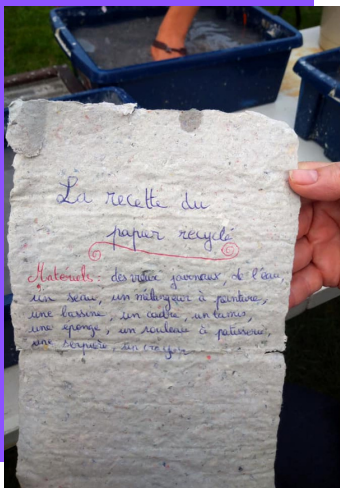 La recette du
papier recyclé
Matériels : des vieux journaux, de l'eau,
un seau, un mélangeur à peinture,
une bassine, un cadre, un tamis,
une éponge, un rouleau à patisserie,
une serpière, un crayon